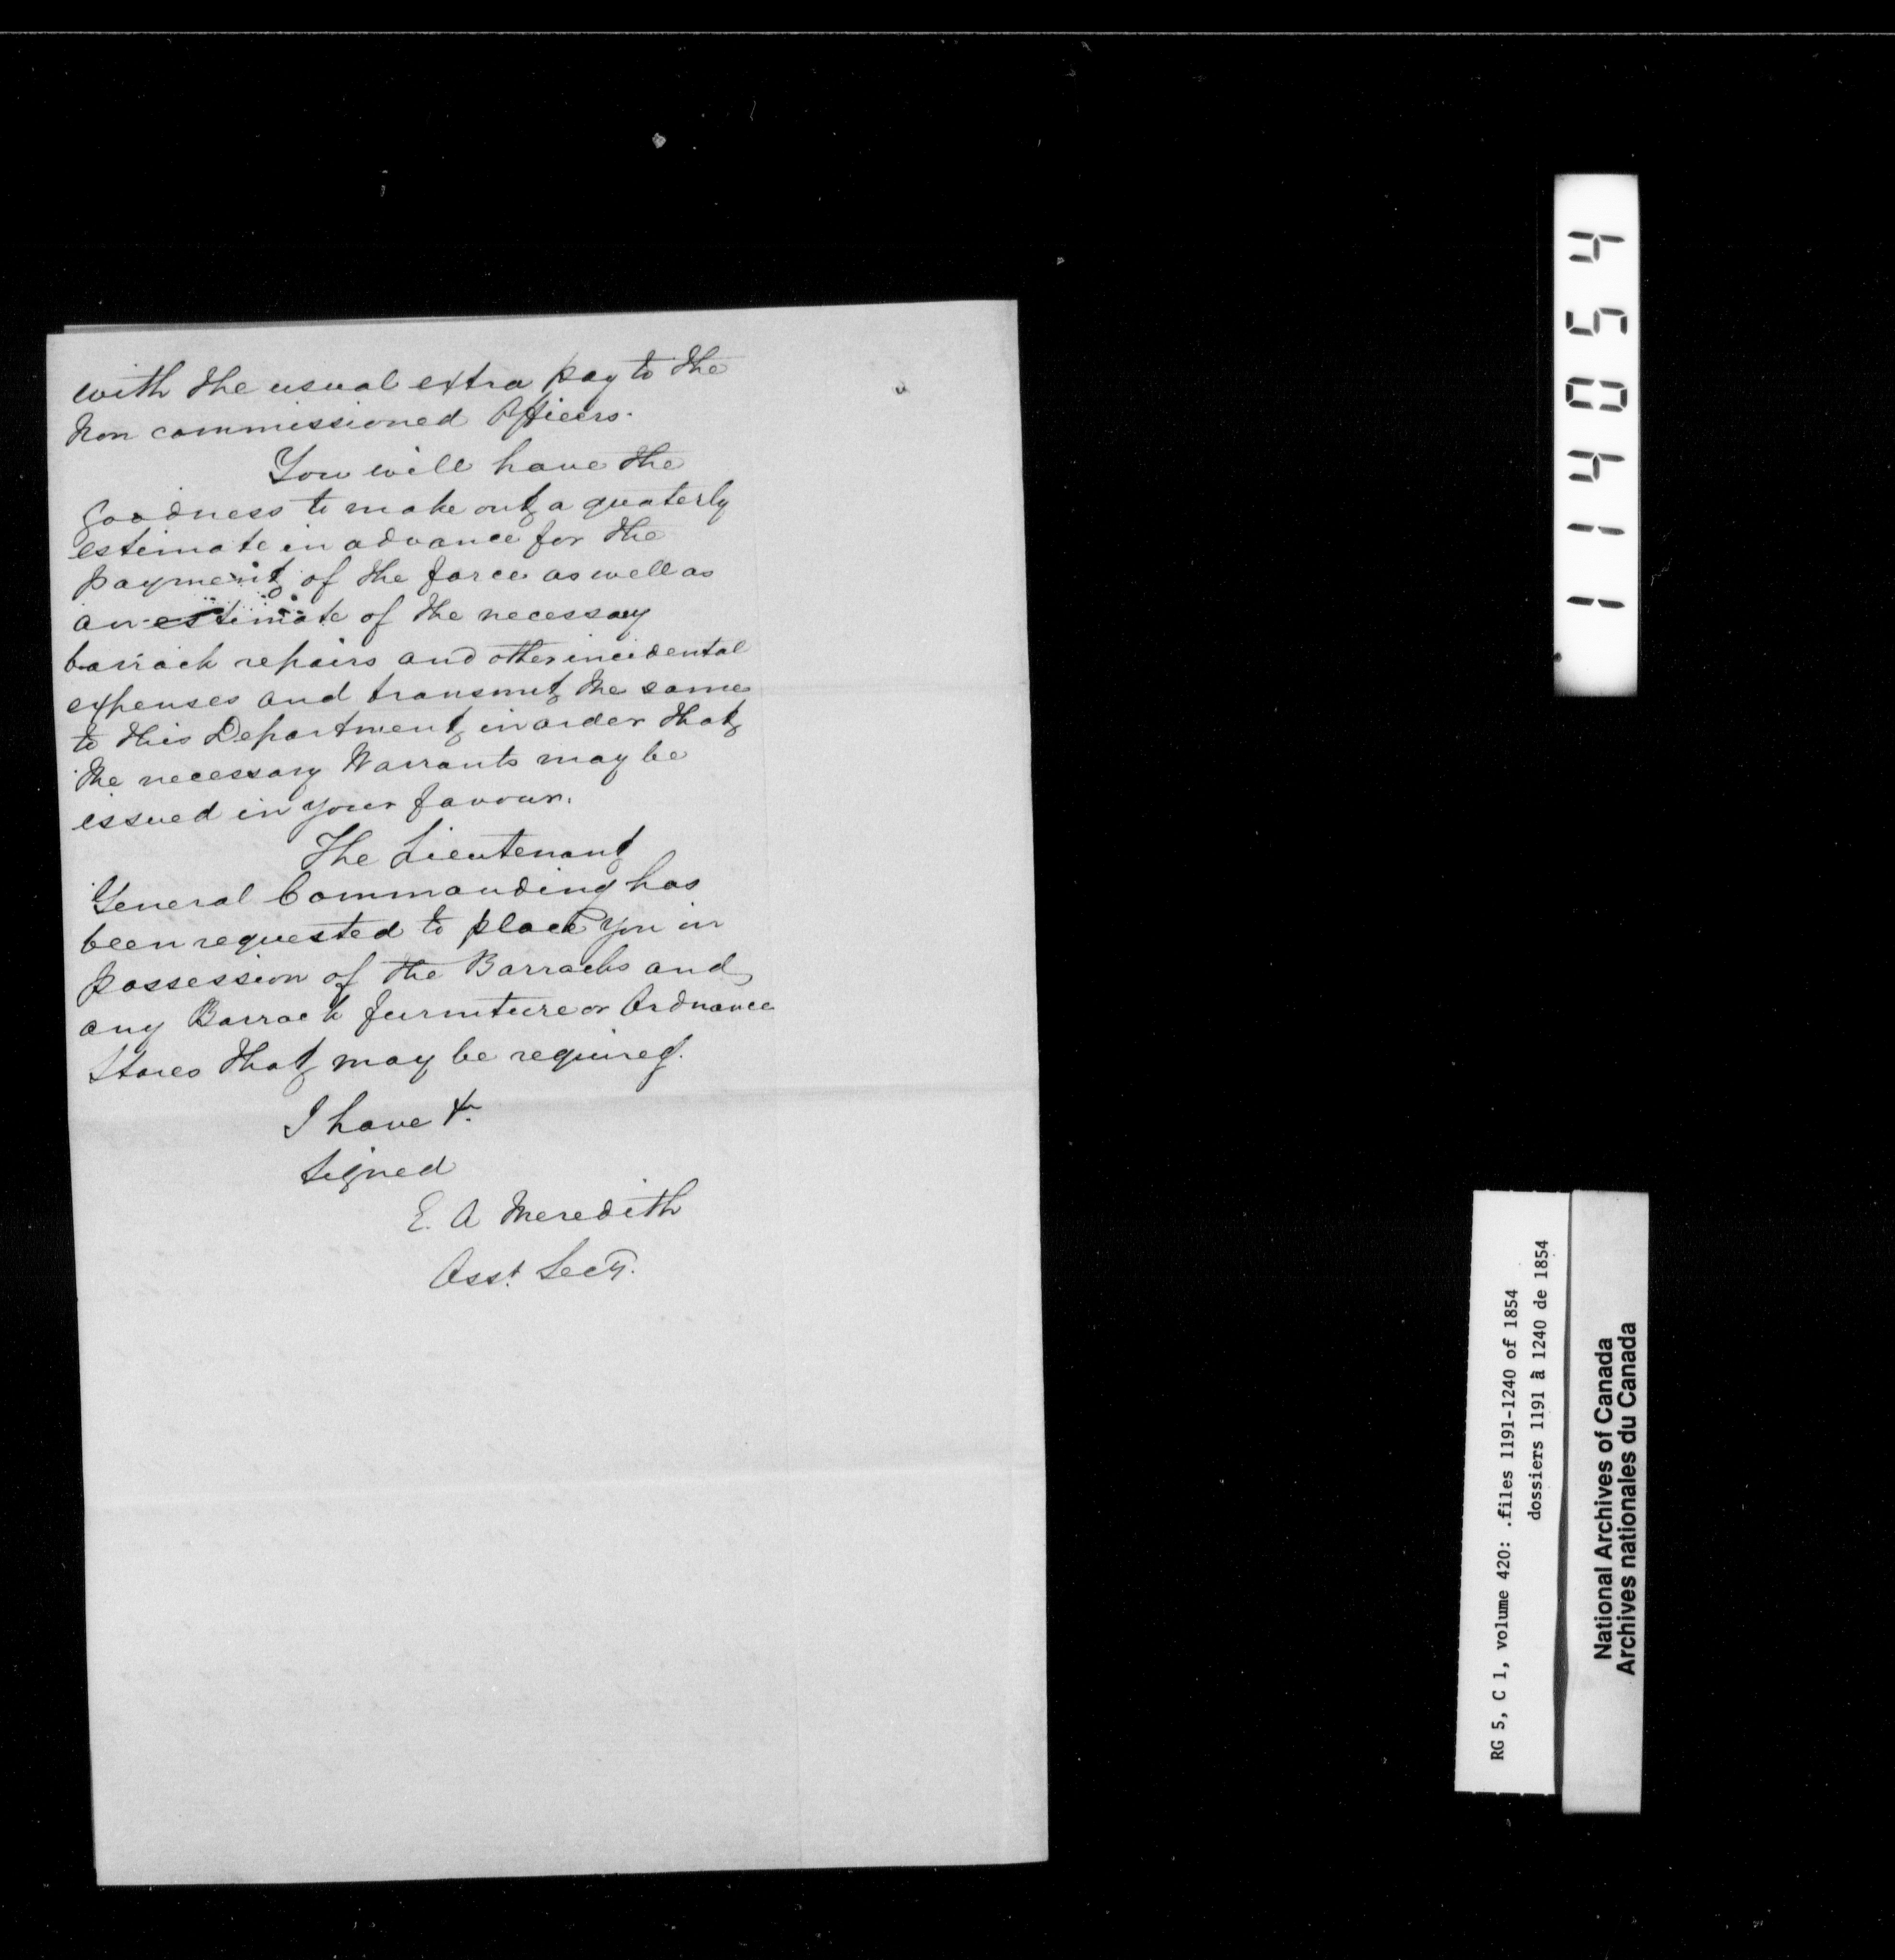 with the usual extra pay to the
Non commissioned Officers.
You will have the
goodness to make out a quaterly
estimate in advance for the
payment of the force as well as
an estimate of the necessary
barrack repairs and other incidental
expenses and transmit the same
to this Department in order that
the necessary Warrants may be
issued in your favour.
The Lieutenant
General Commanding has
been requested to place you in
possession of the Barracks and
any Barrack furniture or Ordnance
Stores that may be required.
I have &.
Signed
E. A Meredith
Asst. Secy.
114054
RG 5, C 1, volume 420: .files 1191-1240 of 1854
dossiers 1191 à 1240 de 1854
National Archives of Canada
Archives nationales du Canada